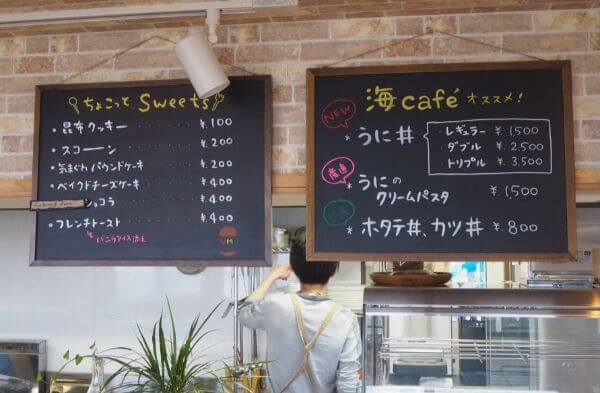 ちょこっと Sweets
・昆布クッキー ¥.100
・スコーン ¥.200
・気まぐれパウンドケーキ ¥.200
・ベイクドチーズケーキ ¥.400
ショコラ ¥.400
・フレンチトースト ¥.400
バニラアイス添え
海café オススメ!
NEW
* うに丼
・レギュラー ¥1,500
・ダブル ¥2,500
・トリプル ¥3,500
産直
* うにの
クリームパスタ ¥1,500
* ホタテ丼、カツ丼 ¥800